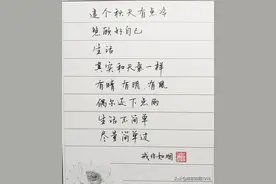 這个秋天有点冷
照顾好自己
生活
其实和天气一样
有晴 有阴 有风
偶尔还下点雨
生活不简单
尽量简单过